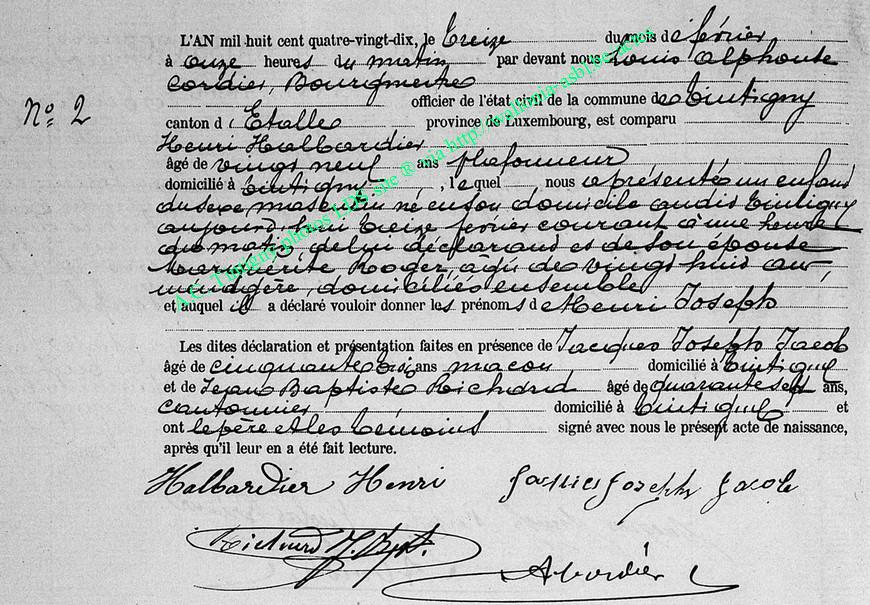 L'AN mil huit cent quatre-vingt-dix, le treize du mois de février
à onze heures du matin par devant nous Louis Alphonse
Cordier, Bourgmestre
officier de l'état civil de la commune de Tintigny
N° 2
canton d'Etalle province de Luxembourg, est comparu
Henri Halbardier
âgé de vingt neuf ans plafonneur
domicilié à Tintigny, lequel nous a présenté un enfant
du sexe masculin né en son domicile audit Tintigny
aujourd'hui treize février courant à une heure
du matin, de lui déclarant et de son épouse
Marguerite Roger, âgée de vingt huit ans,
ménagère, domiciliés ensemble
et auquel il a déclaré vouloir donner les prénoms de Henri Joseph
Les dites déclaration et présentation faites en présence de Jacques Joseph Jacob
âgé de cinquante trois ans maçon domicilié à Tintigny
et de Jean Baptiste Richard âgé de quarante sept ans,
cantonnier domicilié à Tintigny et
ont le père et les témoins signé avec nous le présent acte de naissance,
après qu'il leur en a été fait lecture.
Halbardier Henri Jacques Joseph Jacob
Richard J. Bpt.
A Cordier
A.C. Tintigny photos LDS site ® via http://walkenia-asbl.be